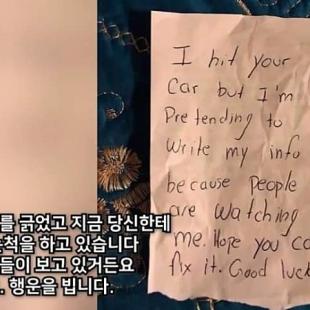 I hit your
Car but I'm
Pretending to
Write my info
because people
are watching
me. Hope you ca
fix it. Good luck
를 긁었고 지금 당신한테
척을 하고 있습니다
들이 보고 있거든요
. 행운을 빕니다.